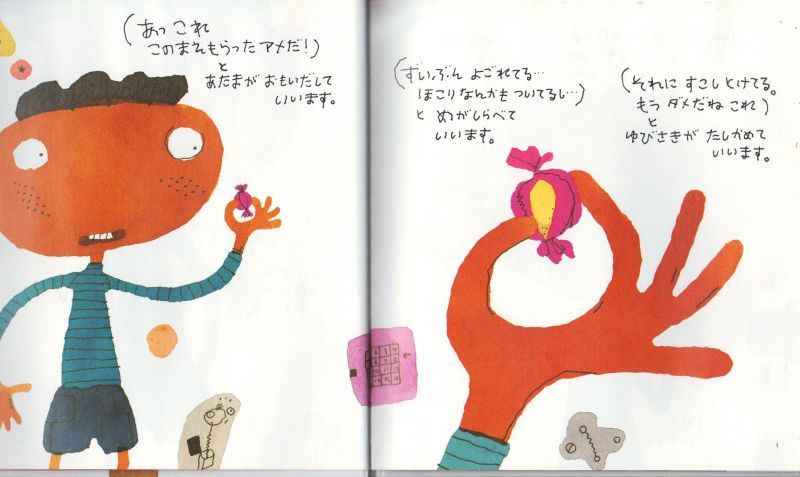 (あっ これ
このまえもらったアメだ!)
と
あたまが おもいだして
いいます。
(ずいぶん よごれてる…
ほこりなんかも ついてるし…)
と めがしらべて
いいます。
(それに すこし とけてる。
もう ダメだね これ)
と
ゆびさきが たしかめて
いいます。